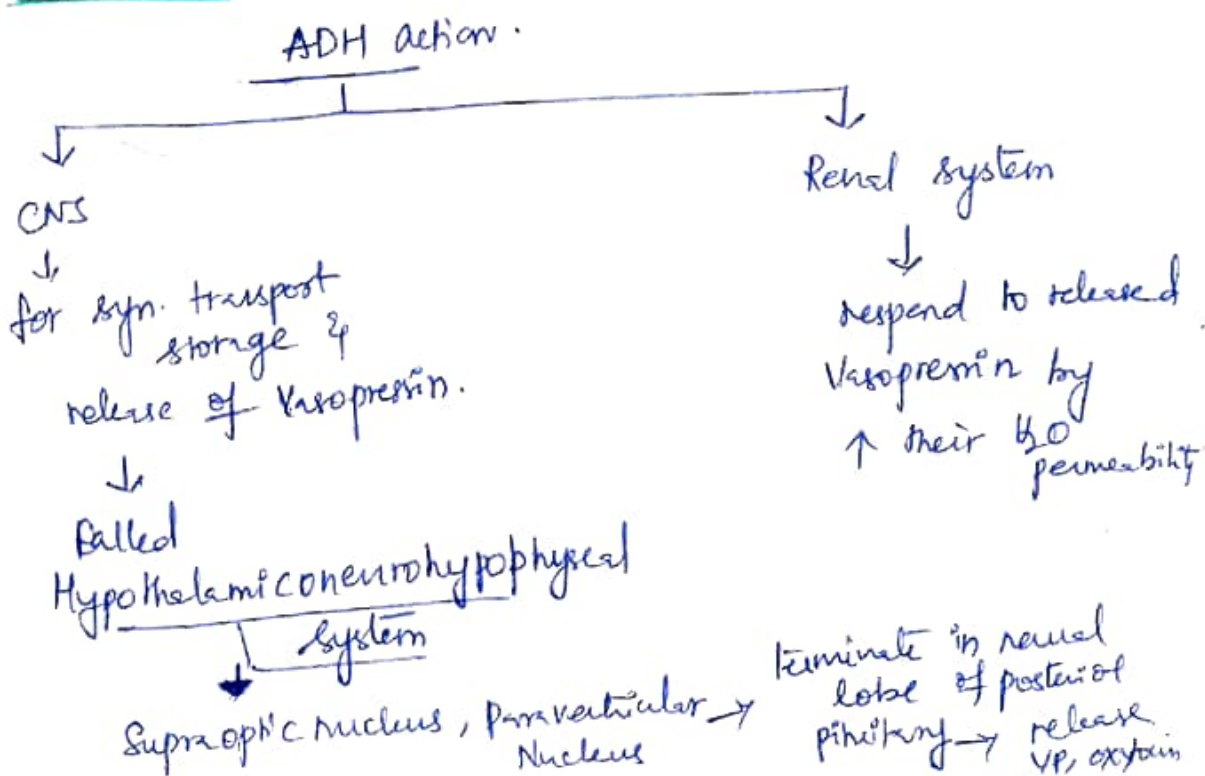 ADH action.
CNS
↓
for syn. transport
storage &
release of Vasopressin.
↓
Called
Hypothalamiconeurohypophyseal
system
Supraoptic nucleus, Paraventricular →
Nucleus
terminate in neural
lobe of posterior
pituitary → release
VP, oxytocin
Renal system
↓
respond to released
Vasopressin by
↑ their H2O
permeability